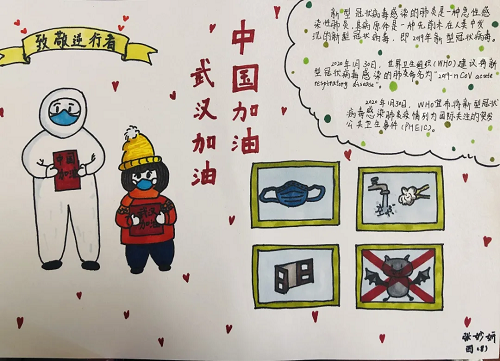 致敬逆行者
中国加油
武汉加油
中国
加油
武汉
加油
新型冠状病毒感染的肺炎是一种急性感
染性肺炎,其病原体是一种先前未在人类中发
现的新型冠状病毒,即2019年新型冠状病毒。
2020年1月30日,世界卫生组织(WHO)建议将新
型冠状病毒感染的肺炎命名为"2019-nCoV acute
respiratory disease".
2020年1月30日,WHO宣布将新型冠状
病毒感染肺炎疫情列为国际关注的突发
公共卫生事件(PHEIC).
张妙妍